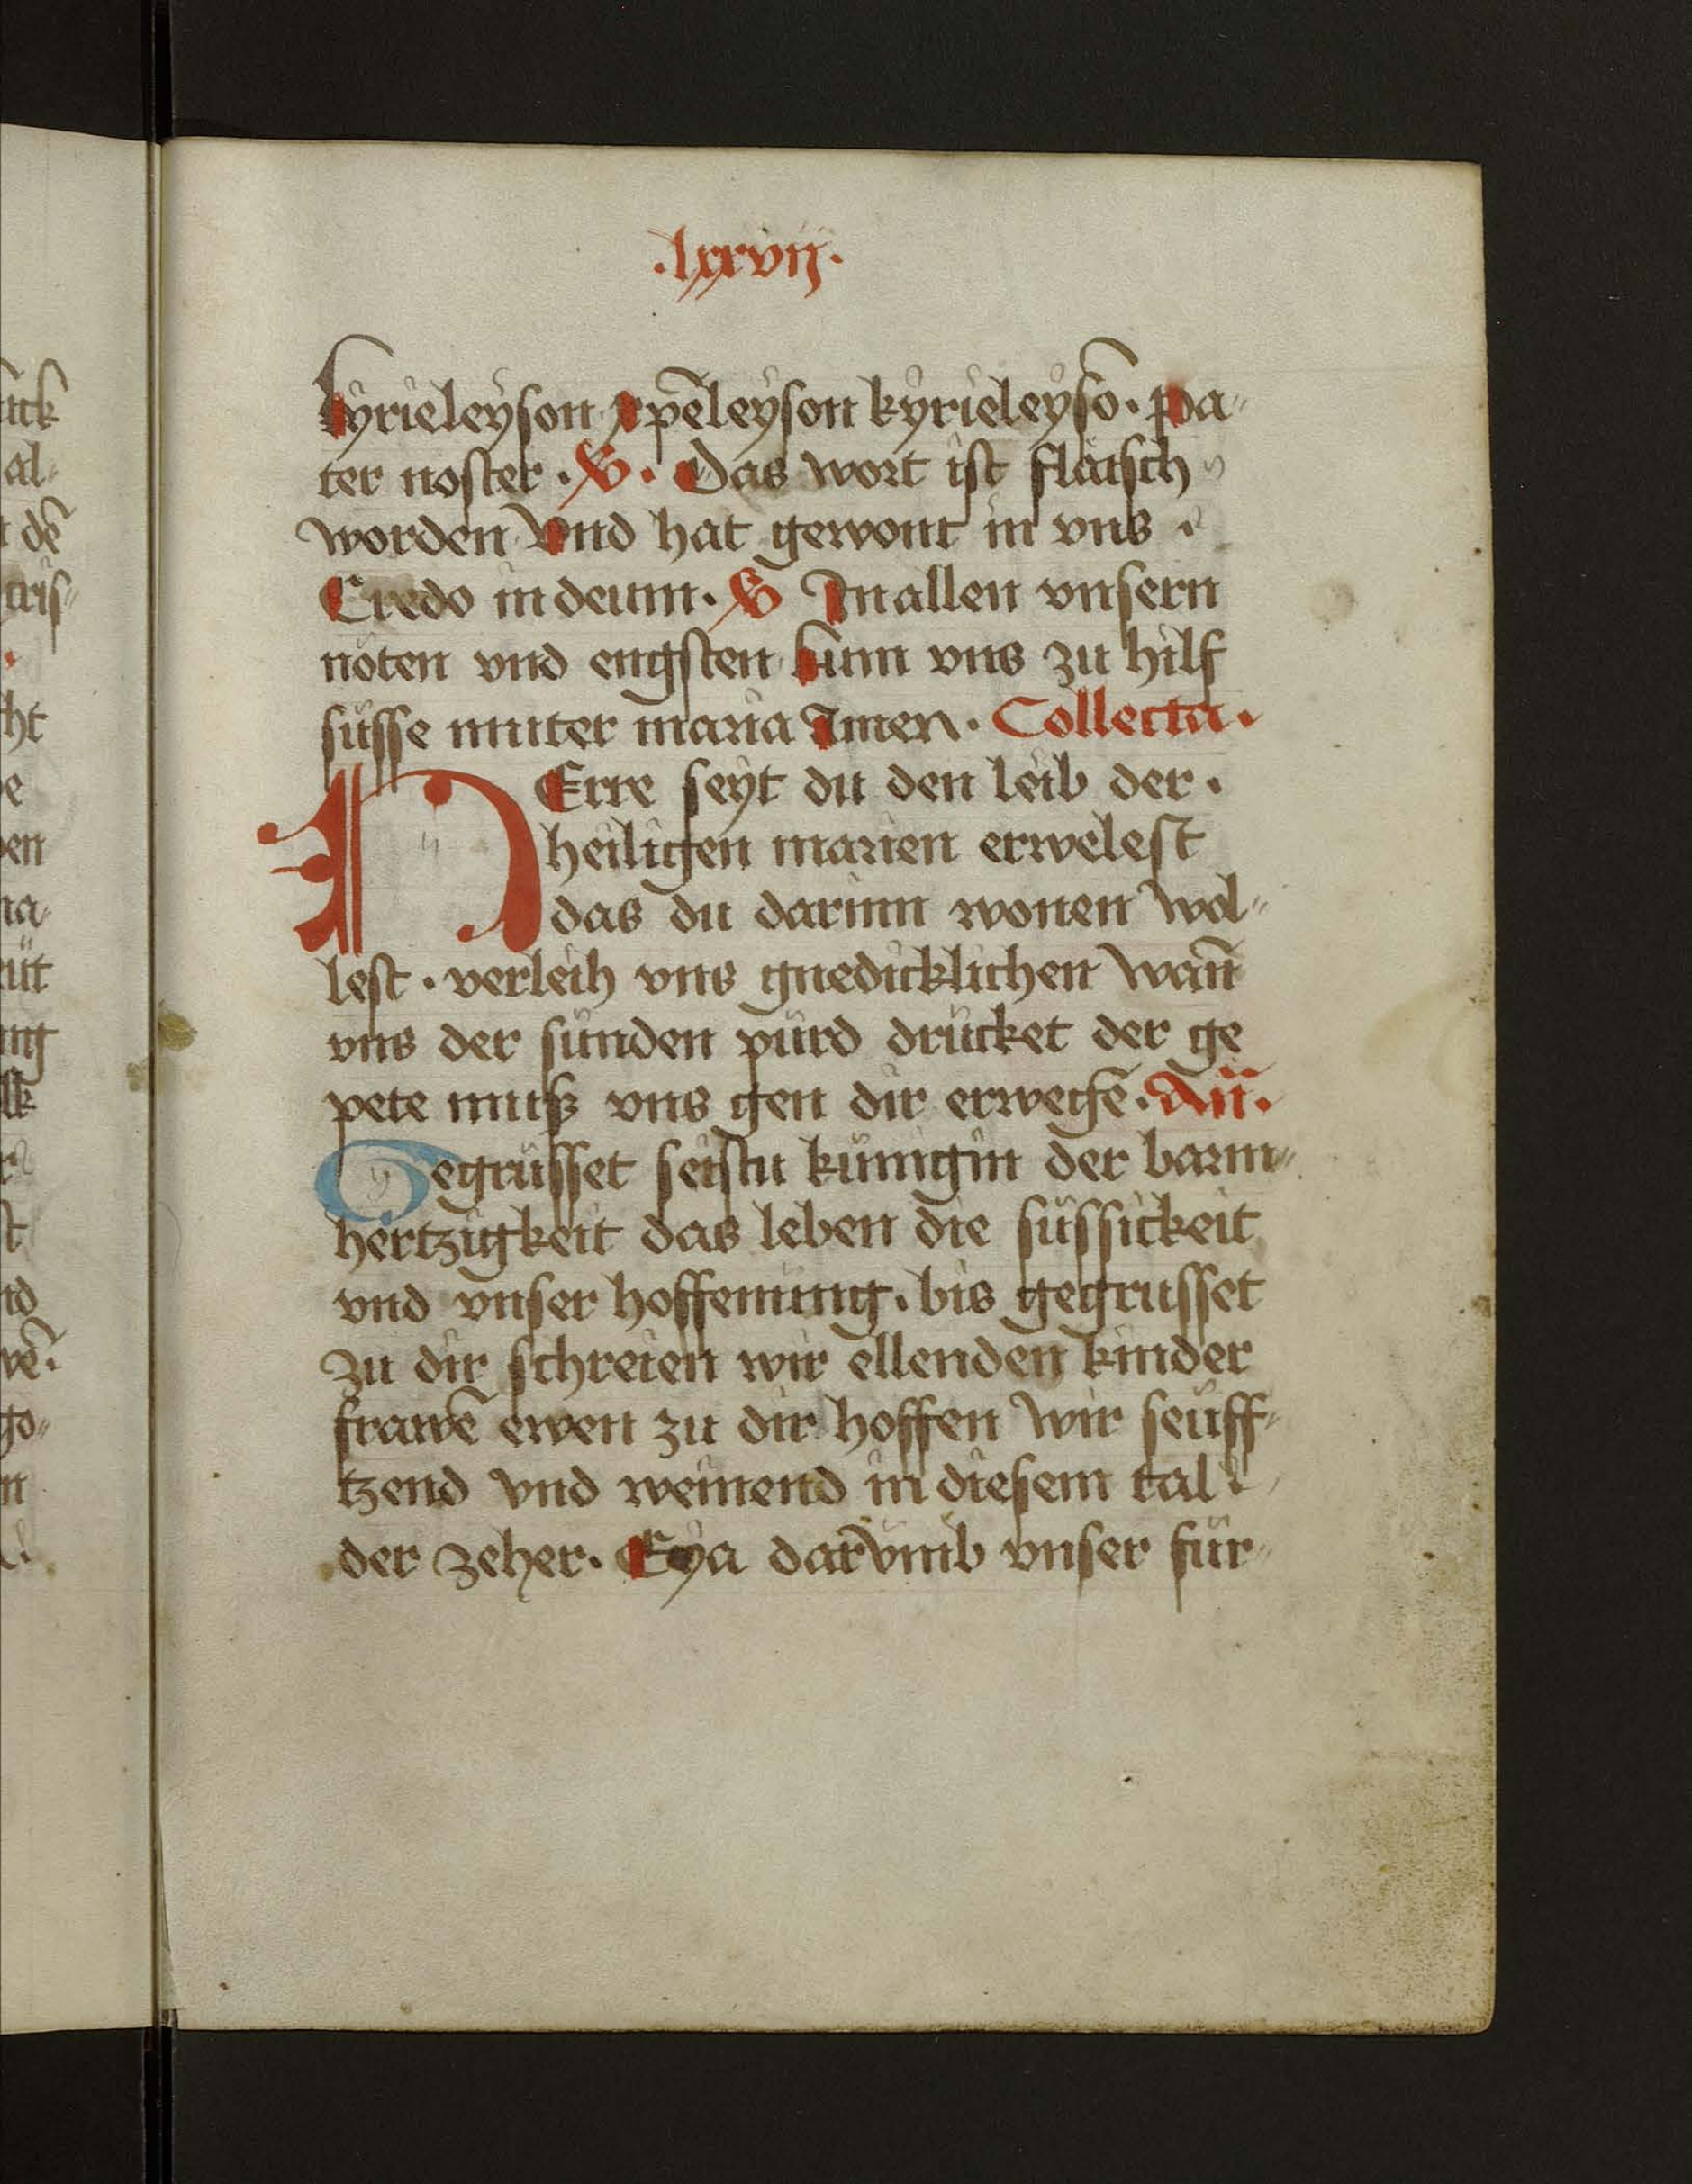 .lxxvij.
kyrieleyson xp̄eleyson kyrieleysō. pa-
ter noster. ℣. Das wort ist flaisch
worden vnd hat gewont in vns.
Credo in deum. ℣ In allen vnsern
nöten vnd engsten kum vns zu hilf
süsse muter maria Amen. Collecta.
HErre seyt du den leib der.
heiligen marien erwelest
das du darinn wonen wol-
lest. verleih vns gnedicklichen wañ
vns der sünden pürd drücket der ge
pete muß vns gen dir erwegē. Añ.
Gegrüsset seistu künigin der barm-
hertzigkeit das leben die süssickeit
vnd vnser hoffenung. bis gegrusset
zu dir schreien wir ellenden kinder
frawē ewen zu dir hoffen wir seüff-
tzend vnd weinend in diesem tal
der zeher. Eya darvmb vnser für-